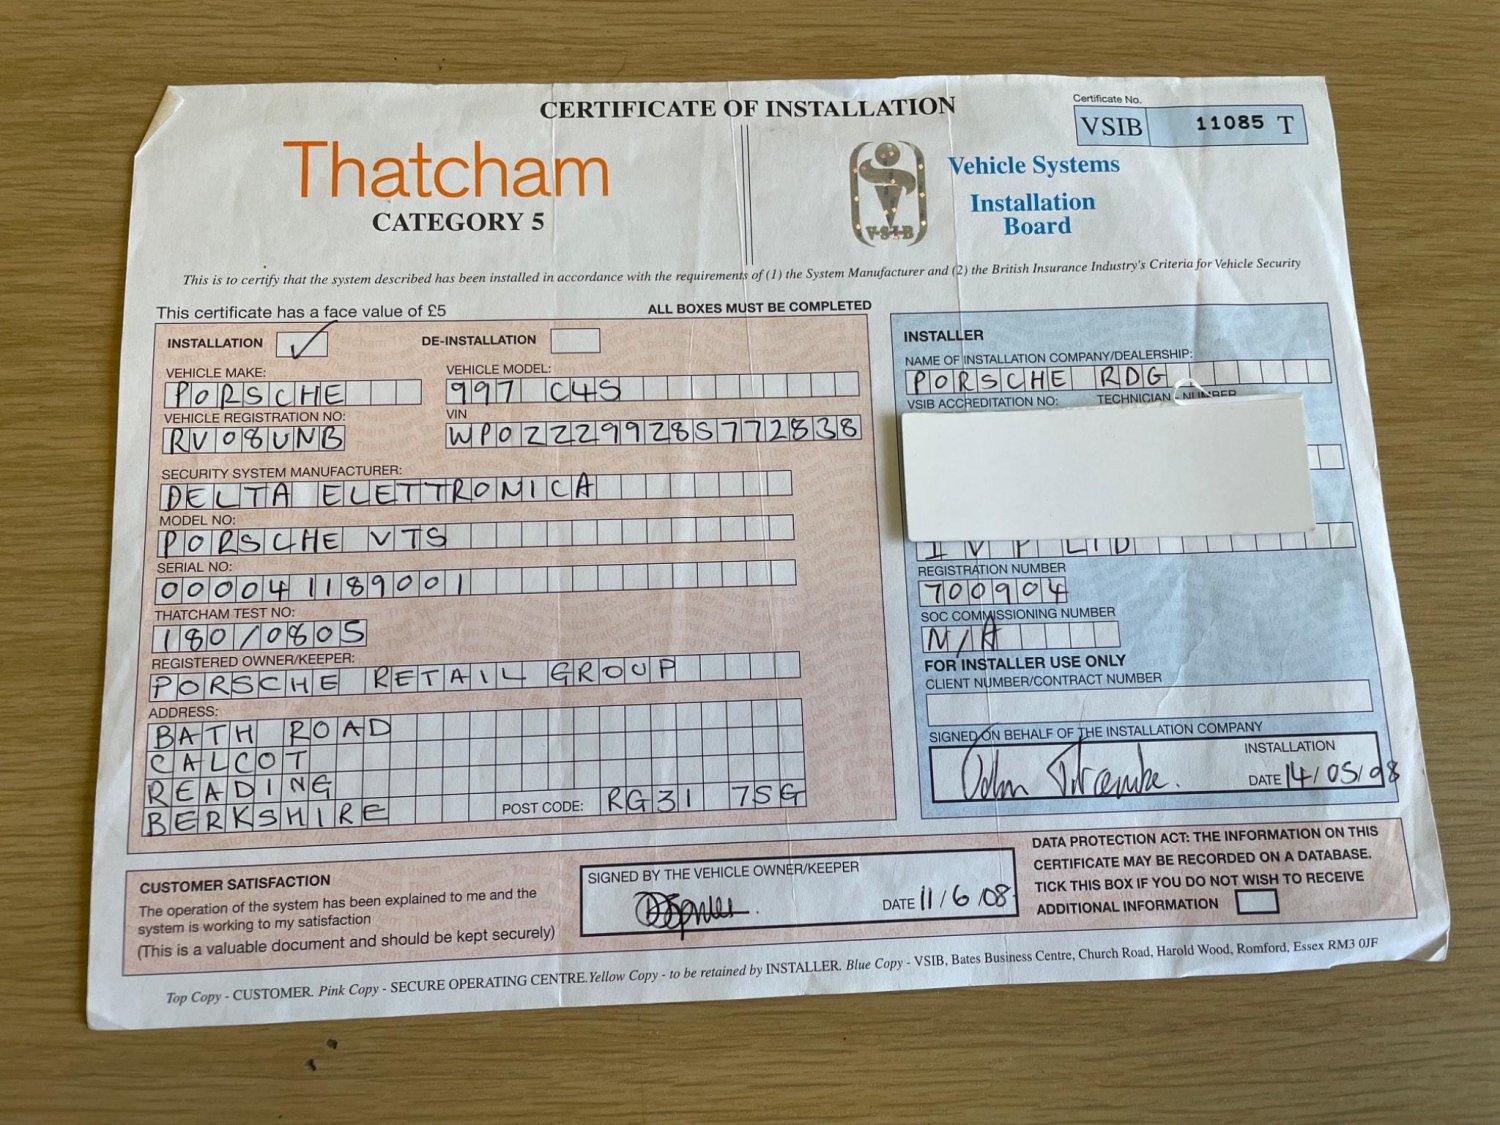 CERTIFICATE OF INSTALLATION
Certificate No.
VSIB 11085 T
Thatcham
CATEGORY 5
V·S·I·B
Vehicle Systems
Installation
Board
This is to certify that the system described has been installed in accordance with the requirements of (1) the System Manufacturer and (2) the British Insurance Industry's Criteria for Vehicle Security
This certificate has a face value of £5
ALL BOXES MUST BE COMPLETED
INSTALLATION ✓
DE-INSTALLATION
VEHICLE MAKE:
PORSCHE
VEHICLE MODEL:
997 C4S
VEHICLE REGISTRATION NO:
RV08UNB
VIN
WP0ZZZ99Z8S772838
SECURITY SYSTEM MANUFACTURER:
DELTA ELETTRONICA
MODEL NO:
PORSCHE VTS
SERIAL NO:
000041189001
THATCHAM TEST NO:
180/0805
REGISTERED OWNER/KEEPER:
PORSCHE RETAIL GROUP
ADDRESS:
BATH ROAD
CALCOT
READING
BERKSHIRE
POST CODE: RG31 7SG
INSTALLER
NAME OF INSTALLATION COMPANY/DEALERSHIP:
PORSCHE RDG
VSIB ACCREDITATION NO:
TECHNICIAN - NUMBER
LTD
REGISTRATION NUMBER
700904
SOC COMMISSIONING NUMBER
N/A
FOR INSTALLER USE ONLY
CLIENT NUMBER/CONTRACT NUMBER
SIGNED ON BEHALF OF THE INSTALLATION COMPANY
INSTALLATION
DATE 14/05/08
CUSTOMER SATISFACTION
The operation of the system has been explained to me and the
system is working to my satisfaction
(This is a valuable document and should be kept securely)
SIGNED BY THE VEHICLE OWNER/KEEPER
DATE 11/6/08
DATA PROTECTION ACT: THE INFORMATION ON THIS
CERTIFICATE MAY BE RECORDED ON A DATABASE.
TICK THIS BOX IF YOU DO NOT WISH TO RECEIVE
ADDITIONAL INFORMATION
Top Copy - CUSTOMER. Pink Copy - SECURE OPERATING CENTRE. Yellow Copy - to be retained by INSTALLER. Blue Copy - VSIB, Bates Business Centre, Church Road, Harold Wood, Romford, Essex RM3 0JF